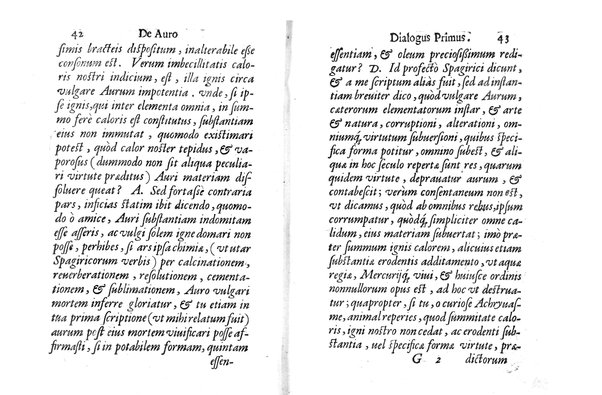 42 De Auro
simis bracteis dispositum, inalterabile esse
consonum est. Verum imbecillitatis calo
ris nostri indicium, est, illa ignis circa
vulgare Aurum impotentia. unde, si ip-
se ignis, qui inter elementa omnia, in sum-
mo ferè caloris est constitutus, substantiam
eius non immutat, quomodo existimari
potest, quòd calor noster tepidus, & va-
porosus (dummodo non sit aliqua peculia-
ri virtute præditus) Auri materiam dis-
soluere queat? A. Sed fortasse contraria
pars, inficias statim ibit dicendo, quomo-
do ò amice, Auri substantiam indomitam
esse asseris, ac vulgi solem igne domari non
posse, perhibes, si ars ipsa chimia, (vt utar
Spagiricorum verbis) per calcinationem,
reuerberationem, resolutionem, cementa-
tionem, & sublimationem, Auro vulgari
mortem inferre gloriatur, & tu etiam in
tua prima scriptione (vt mihi relatum fuit)
aurum post eius mortem viuificari posse af-
firmasti, si in potabilem formam, quintam
essen-
Dialogus Primus. 43
essentiam, & oleum preciosissimum redi-
gatur? D. Id profectò Spagirici dicunt,
& a me scriptum aliàs fuit, sed ad instan-
tiam breuiter dico, quòd vulgare Aurum,
cæterorum elementorum instar, & arte
& natura, corruptioni, alterationi, om-
niumq́; virtutum subuersioni, quibus speci-
fica forma potitur, omnino subest, & ali-
quæ in hoc seculo repertæ sunt res, quarum
quidem virtute, deprauatur aurum, &
contabescit; verùm consentaneum non est,
vt dicamus, quòd ab omnibus rebus, ipsum
corrumpatur, quòdq́; simpliciter omne ca-
lidum, eius materiam subuertat; imò præ-
ter summum ignis calorem, alicuius etiam
substantiæ erodentis additamento, vt aquæ
regiæ, Mercurijq́; viui, & huiusce ordinis
nonnullorum opus est, ad hoc vt destrua-
tur; quapropter, si tu, o curiose Achryuas-
me, animal reperies, quod summitate calo-
ris, igni nostro non cedat, ac erodenti sub-
stantia, uel specificæ formæ virtute, præ-
G 2 dictorum